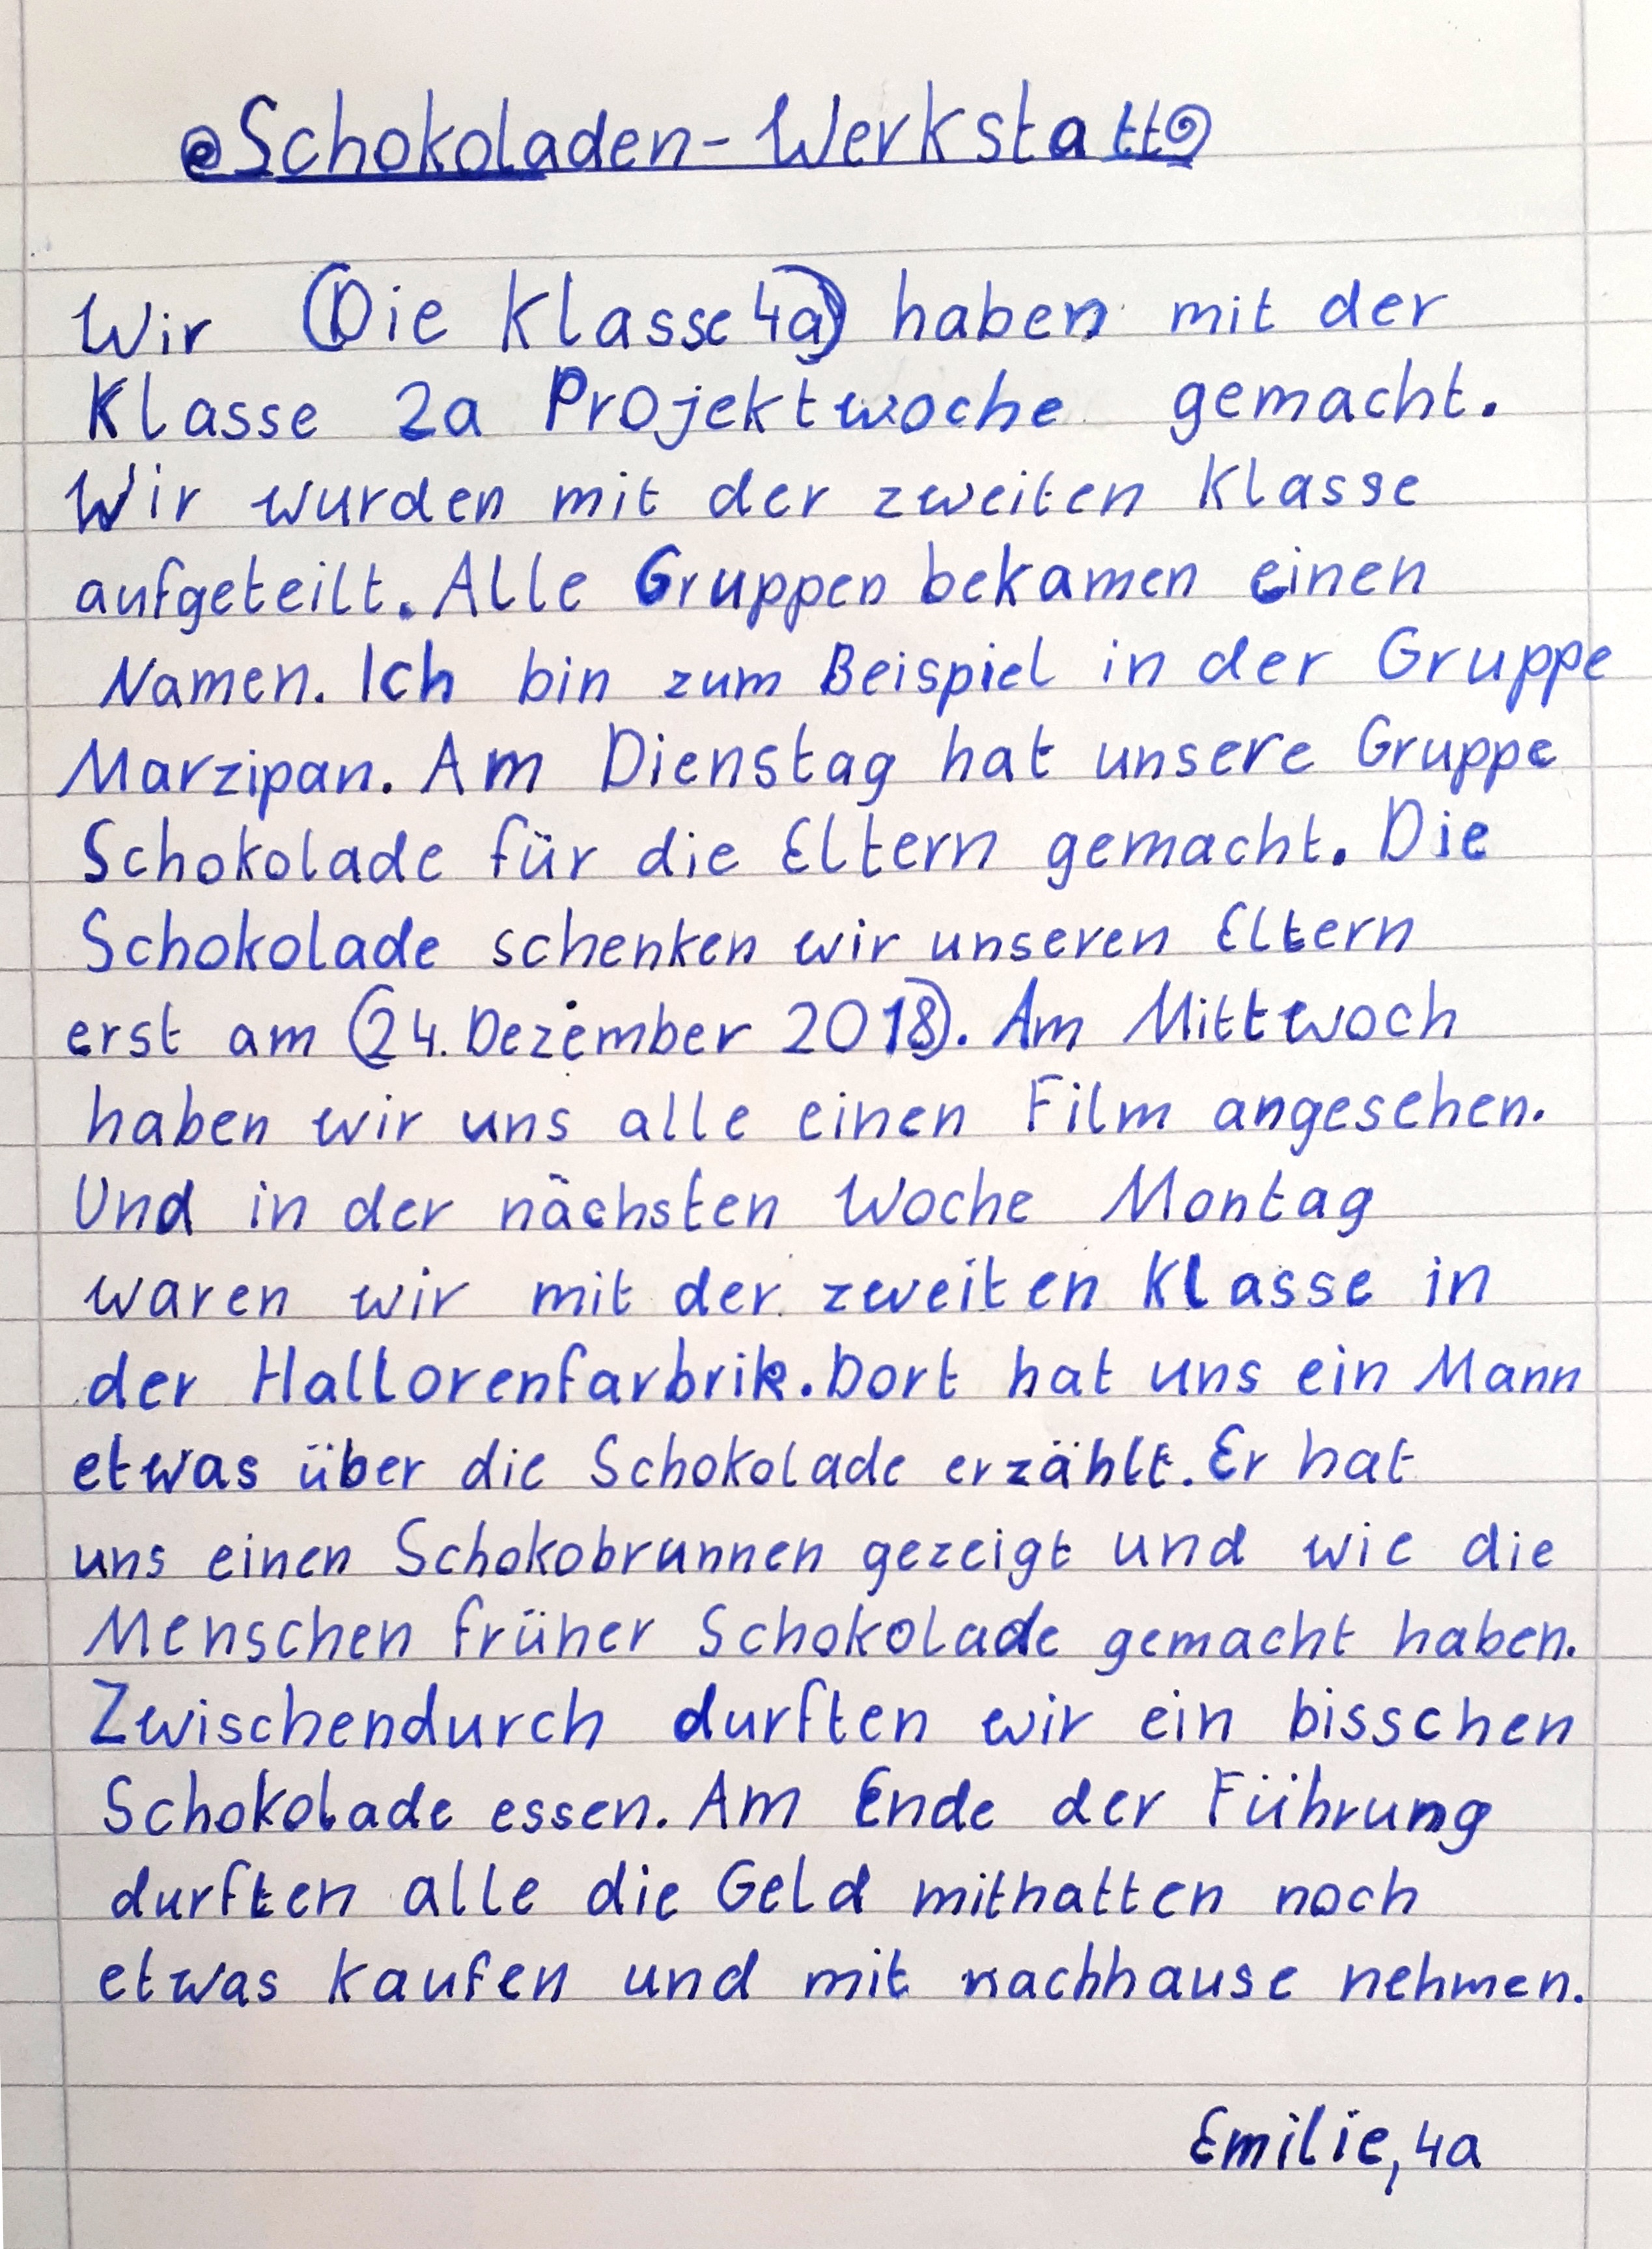 Schokoladen-Werkstatt
Wir (Die Klasse 4a) haben mit der
Klasse 2a Projektwoche gemacht.
Wir wurden mit der zweiten Klasse
aufgeteilt. Alle Gruppen bekamen einen
Namen. Ich bin zum Beispiel in der Gruppe
Marzipan. Am Dienstag hat unsere Gruppe
Schokolade für die Eltern gemacht. Die
Schokolade schenken wir unseren Eltern
erst am (24. Dezember 2018). Am Mittwoch
haben wir uns alle einen Film angesehen.
Und in der nächsten Woche Montag
waren wir mit der zweiten Klasse in
der Hallorenfarbrik. Dort hat uns ein Mann
etwas über die Schokolade erzählt. Er hat
uns einen Schokobrunnen gezeigt und wie die
Menschen früher Schokolade gemacht haben.
Zwischendurch durften wir ein bisschen
Schokolade essen. Am Ende der Führung
durften alle die Geld mithatten noch
etwas kaufen und mit nachhause nehmen.
Emilie, 4a